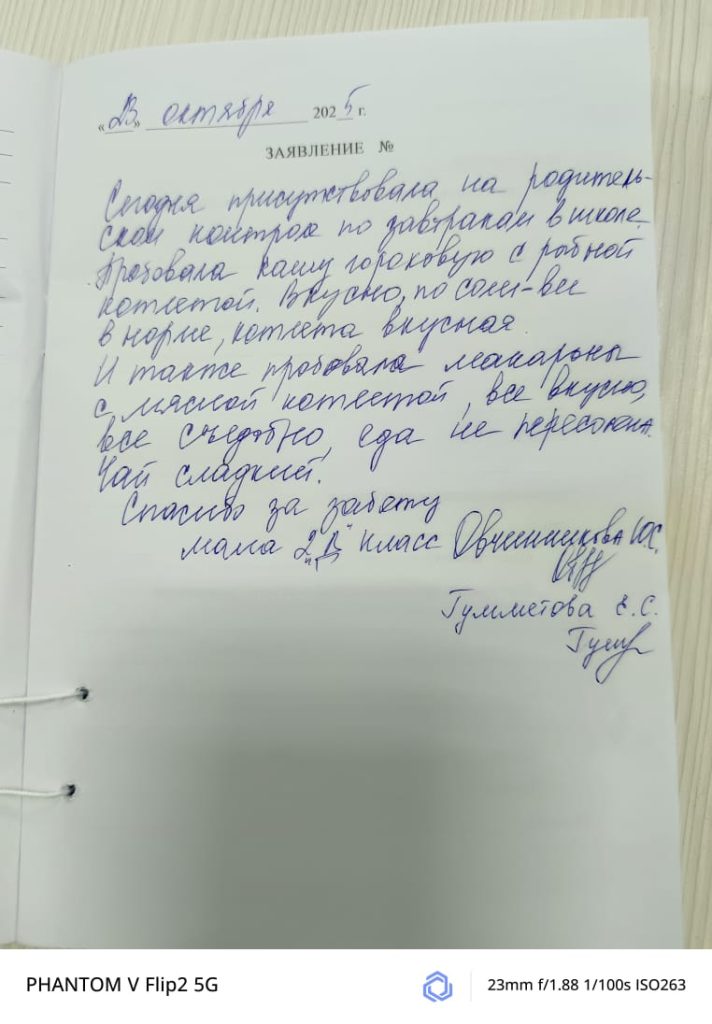 «23» октября 2025 г.
ЗАЯВЛЕНИЕ №
Сегодня присутствовала на родитель-
ском контроле по завтракам в школе.
Пробовала кашу гороховую с рыбной
котлетой. Вкусно, по соли-все
в норме, котлета вкусная.
И также пробовала макароны
с мясной котлетой, все вкусно,
все съедобно, еда не пересолена.
Чай сладкий.
Спасибо за заботу
мама 2 "В" класс Овчинникова Ю.С.
Гумметова Е.С.
PHANTOM V Flip2 5G
23mm f/1.88 1/100s ISO263